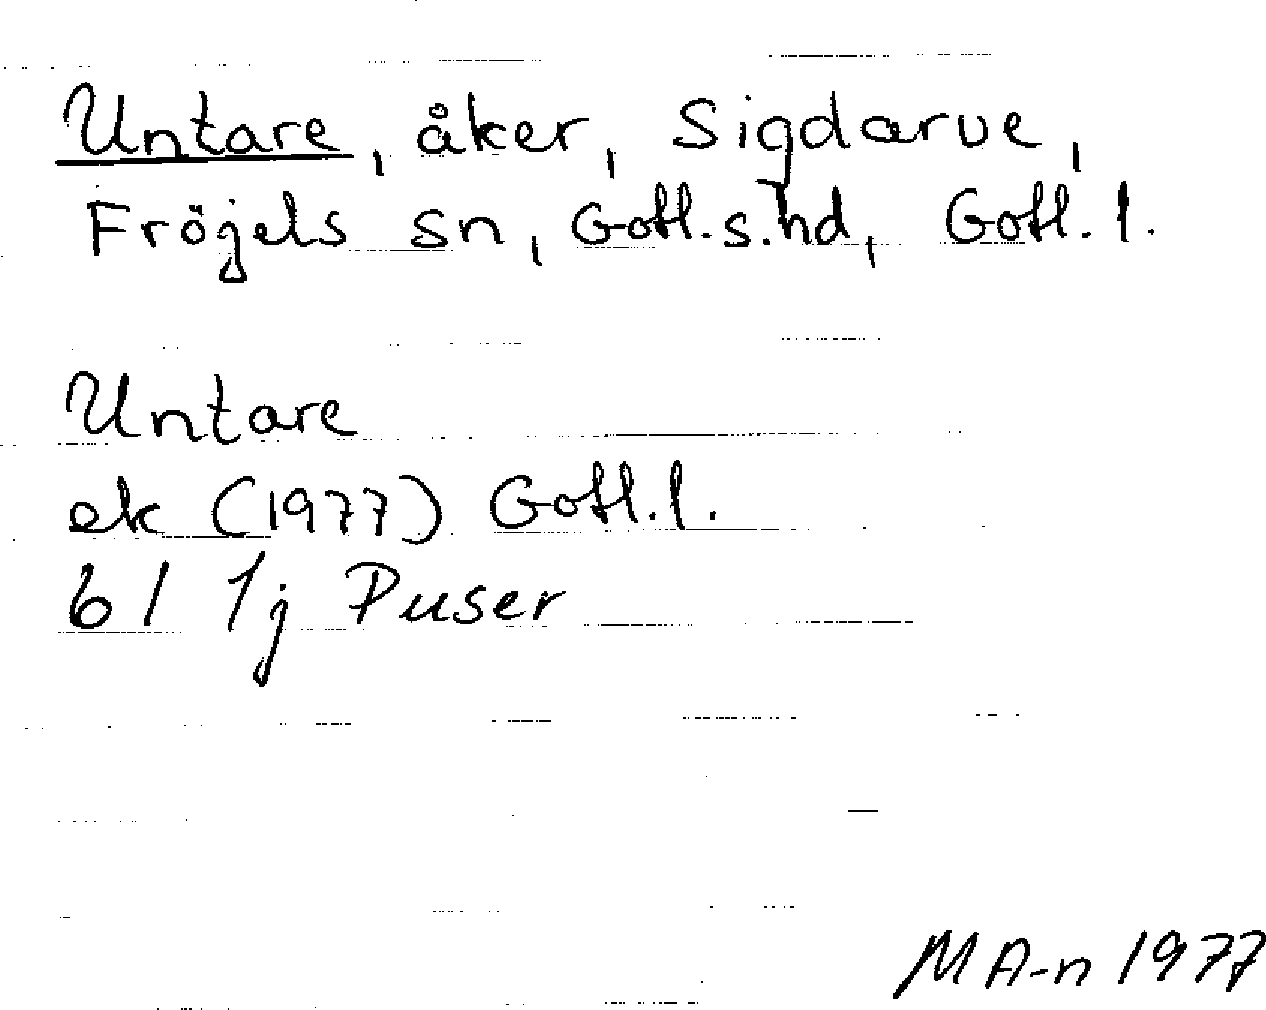 Untare, åker, Sigdarve,
Fröjels sn, Gotl.s.hd, Gotl. l.
Untare
ek (1977) Gotl. l.
6 I 1j Puser
MA-n 1977